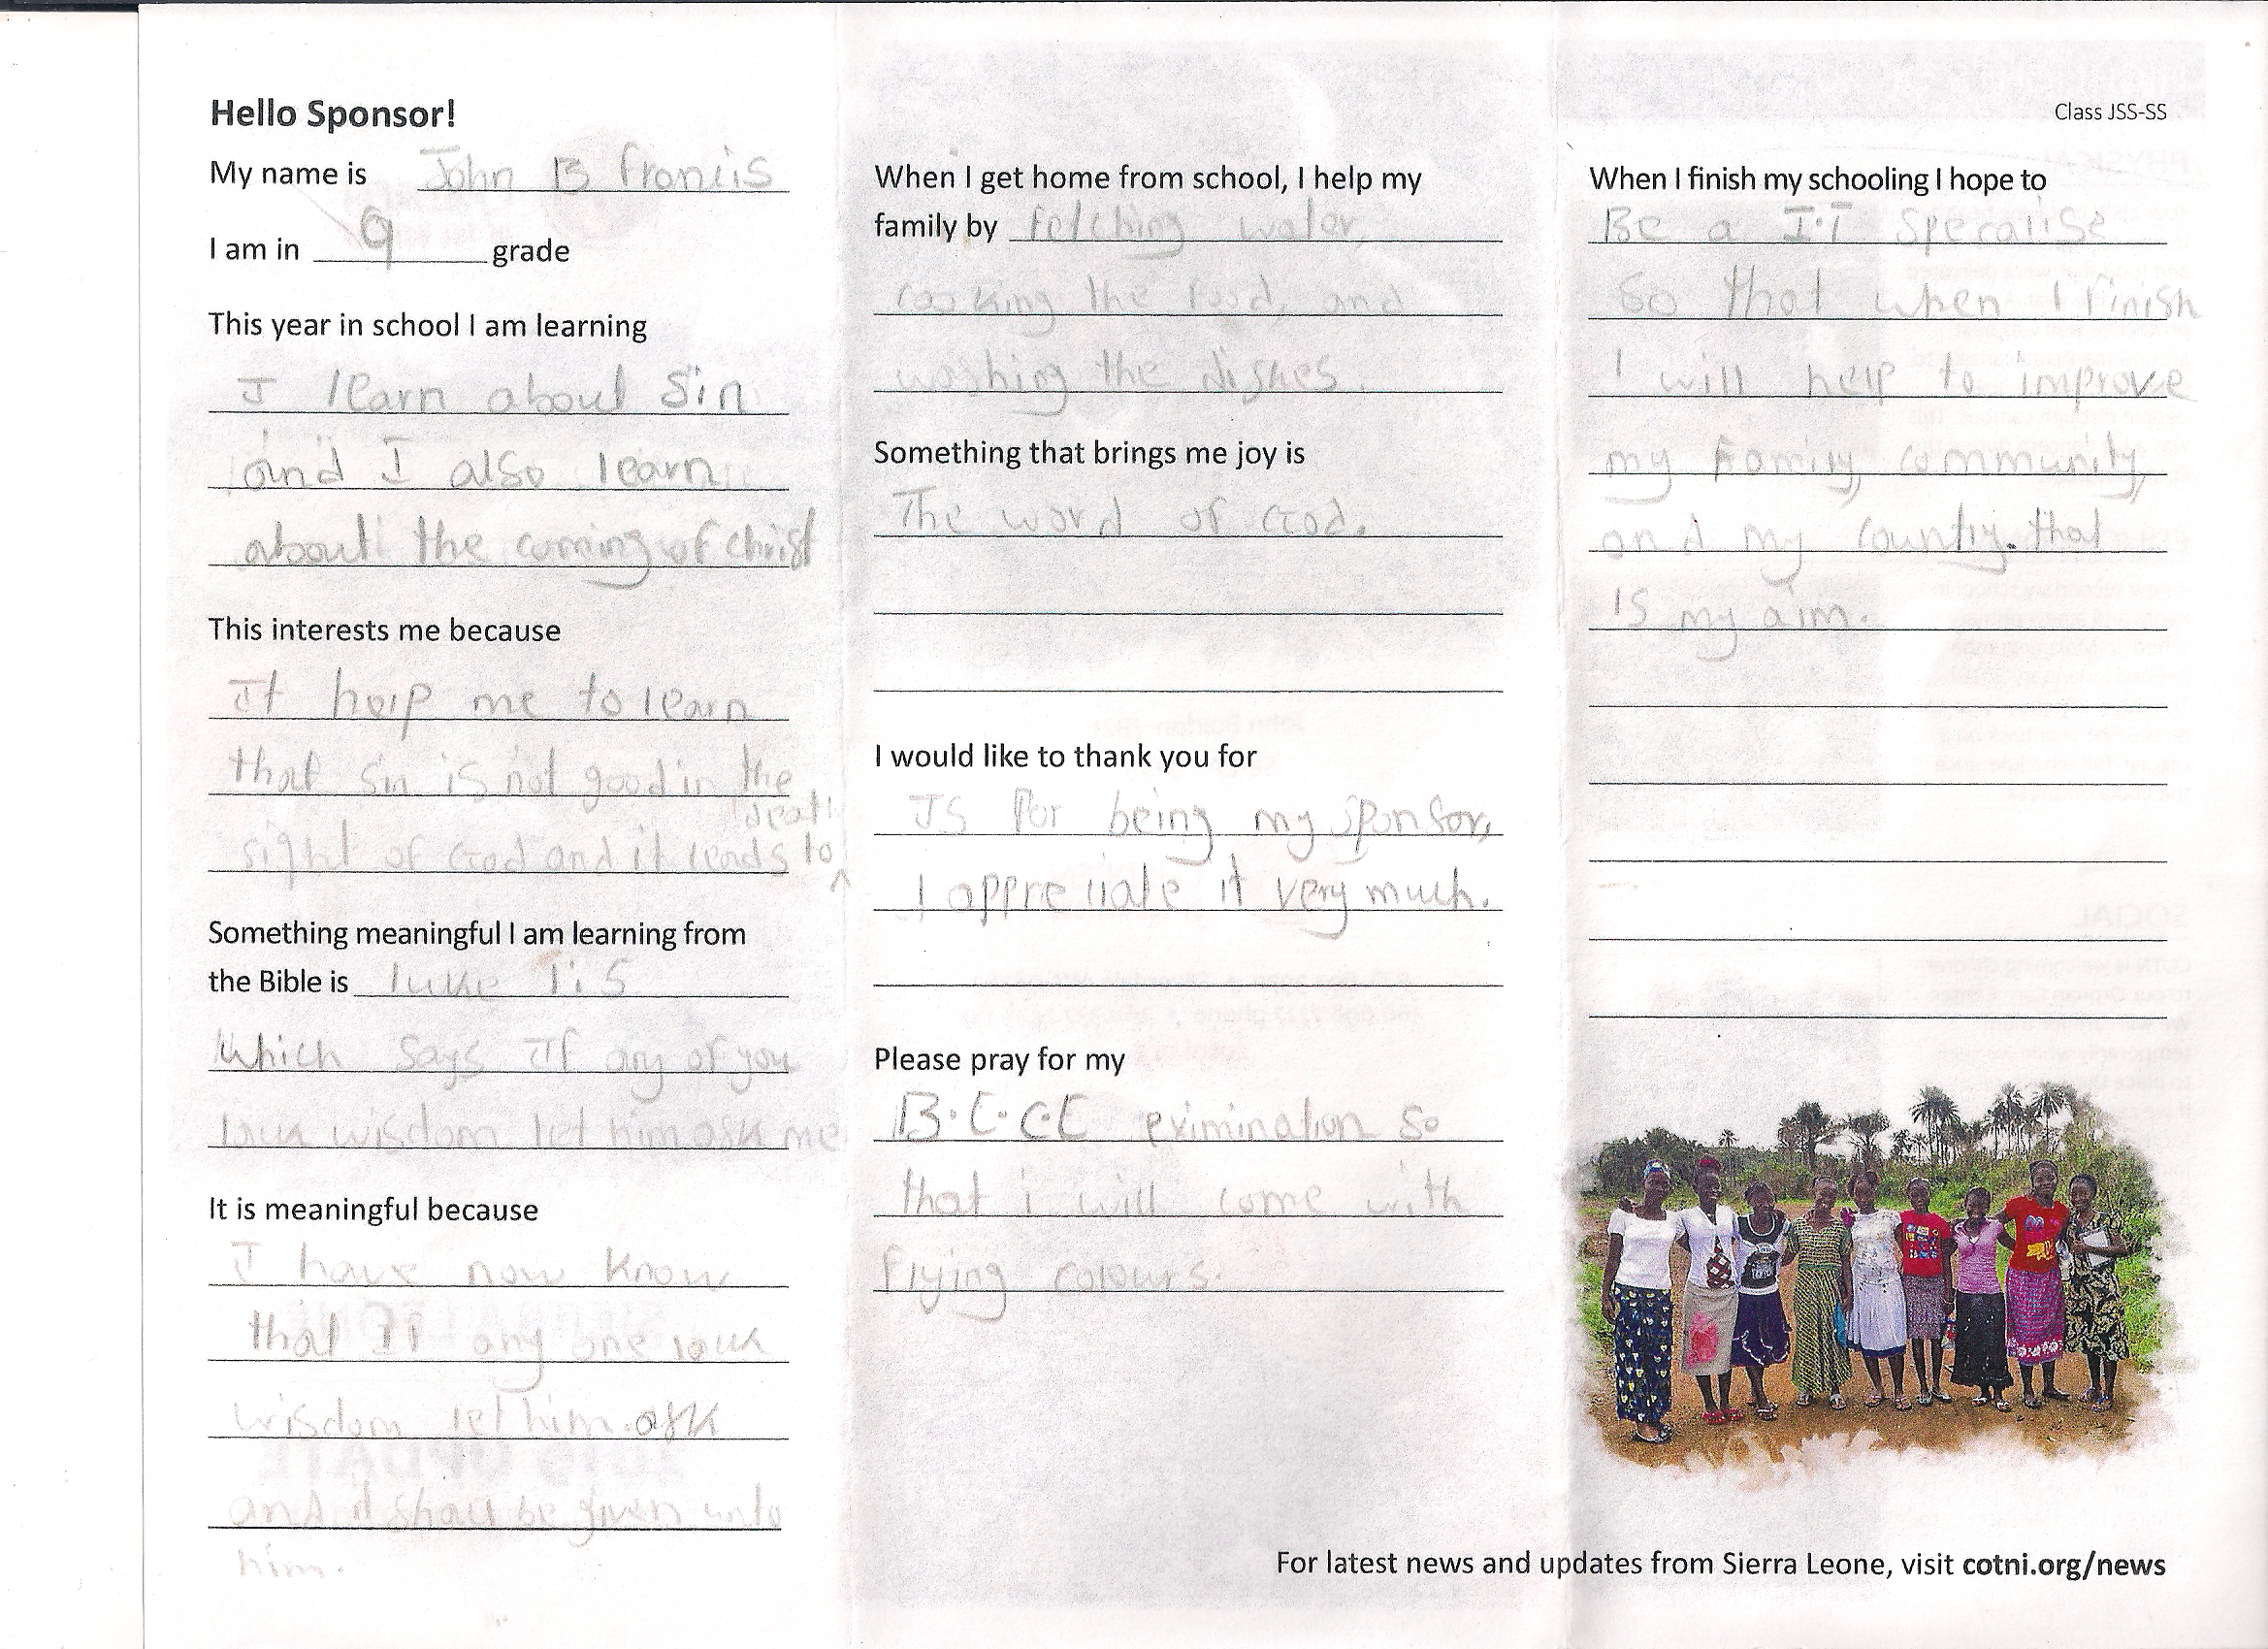 Hello Sponsor!
My name is John B Francis
I am in 9 grade
This year in school I am learning
I learn about Sin
and I also learn
about the coming of christ
This interests me because
It help me to learn
that sin is not good in the
sight of God and it leads to death
Something meaningful I am learning from
the Bible is luke 1:5
which says If any of you
lack wisdom let him ask me
It is meaningful because
I have now know
that If any one lack
wisdom let him ask
and it shall be given unto
him.
When I get home from school, I help my
family by fetching water,
cooking the food, and
washing the dishes.
Something that brings me joy is
The word of God.
I would like to thank you for
Is for being my sponsor,
I appreciate it very much.
Please pray for my
B.E.C.E eximination so
that i will come with
flying colours.
Class JSS-SS
When I finish my schooling I hope to
Be a I.T Specalise
so that when I finish
I will help to improve
my Family, community,
and my country. that
is my aim.
For latest news and updates from Sierra Leone, visit cotni.org/news